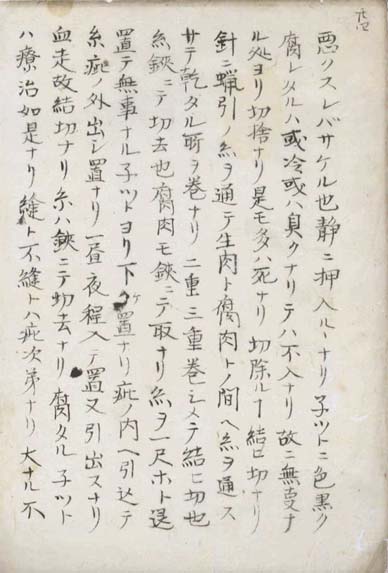 悪クスレバサケル也静ニ押入ルヽナリ子ツトニ色黒ク
腐レタルハ或冷或ハ臭クナリテハ不入ナリ故ニ無事ナ
ル処ヨリ切捨ナリ是モ多ハ死ナリ切除ルヿ結ヒ切ナリ
針ニ蝋引ノ糸ヲ通テ生肉ト腐肉トノ間ヘ糸ヲ通ス
サテ乾タル所ヲ巻ナリ二重三重巻シメテ結ヒ切也
糸鋏ニテ切去也腐肉モ鋏ニテ取ナリ糸ヲ一尺ホト送
置テ無事ナル子ツトヨリ下ケ置ナリ疵ノ内ヘ引込テ
糸疵ノ外出シ置ナリ一昼夜程入テ置又引出スナリ
血走故結切ナリ糸ハ鋏ニテ切去ナリ腐タル子ツト
ハ療治如是ナリ縫ト不縫トハ疵次第ナリ大ナル不